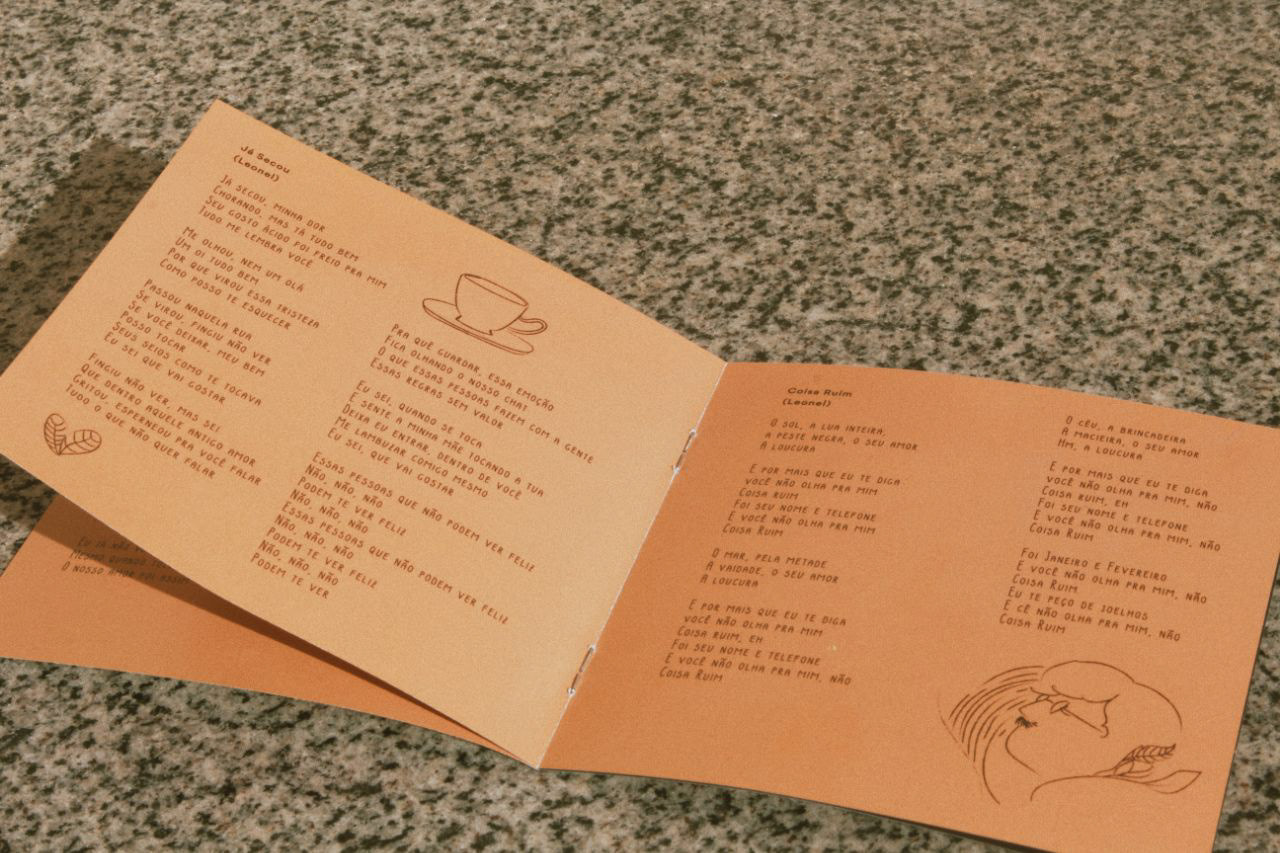 Já Secou
(Leonel)
Já secou, minha dor
Chorando, mas tá tudo bem
Seu gosto ácido foi freio pra mim
Tudo me lembra você
Me olhou, nem um olá
Um oi tudo bem
Por que virou essa tristeza
Como posso te esquecer
Passou naquela rua
Se virou, fingiu não ver
Se você deixar, meu bem
Posso tocar
Seus seios como te tocava
Eu sei que vai gostar
Fingiu não ver, mas sei
Que dentro aquele antigo amor
Gritou, esperneou pra você falar
Tudo o que não quer falar
Pra quê guardar, essa emoção
Fica olhando o nosso chat
O que essas pessoas fazem com a gente
Essas regras sem valor
Eu sei, quando se toca
E sente a minha mãe tocando a tua
Deixa eu entrar, dentro de você
Me lambuzar comigo mesmo
Eu sei, que vai gostar
Essas pessoas que não podem ver feliz
Não, não, não
Podem te ver feliz
Não, não, não
Essas pessoas que não podem ver feliz
Não, não, não
Podem te ver feliz
Não, não, não
Podem te ver
Eu já não
Mesmo quando
O nosso amor foi assim
Coisa Ruim
(Leonel)
O sol, a lua inteira,
a peste negra, o seu amor
A loucura
E por mais que eu te diga
você não olha pra mim
Coisa ruim
Foi seu nome e telefone
E você não olha pra mim
Coisa Ruim
O mar, pela metade
A vaidade, o seu amor
A loucura
E por mais que eu te diga
você não olha pra mim
Coisa ruim, eh
Foi seu nome e telefone
E você não olha pra mim, não
Coisa Ruim
O céu, a brincadeira
A macieira, o seu amor
Hm, a loucura
E por mais que eu te diga
você não olha pra mim, não
Coisa ruim, eh
Foi seu nome e telefone
E você não olha pra mim, não
Coisa Ruim
Foi Janeiro e Fevereiro
E você não olha pra mim, não
Coisa Ruim
Eu te peço de joelhos
E cê não olha pra mim, não
Coisa Ruim